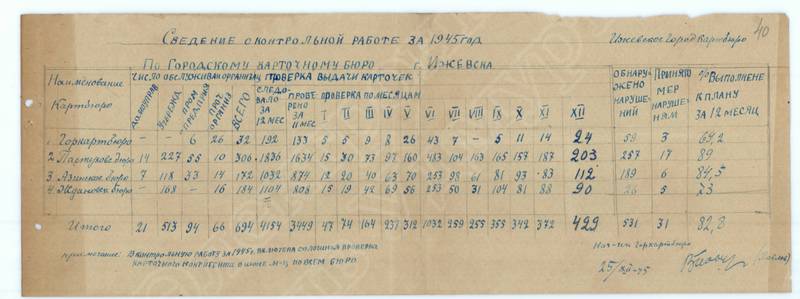 40
Сведение о контрольной работе за 1945 год
Ижевское Горкартбюро
По Городскому карточному бюро г. Ижевска
Наименование Картбюро
Число обслуживан организац
Проверка выдачи карточек
Домоуправ
Учрежд
Пром предприя
Проч организ
Всего
Следовало за 12 мес
Проверено за 11 мес
Проверка по месяцам
I II III IV V VI VII VIII IX X XI XII
Обнаружено нарушений
Принято мер нарушениям
% выполнене к плану за 12 месяц
1 Горкартбюро - 6 26 32 192 133 5 5 9 8 26 43 7 - 5 11 14 24 59 3 69,2
2 Пастухове бюро 14 227 55 10 306 1836 1634 15 30 73 97 160 483 104 163 165 157 187 203 257 17 89
3 Азинское бюро 7 118 33 14 172 1032 874 12 20 40 63 70 253 98 61 81 93 83 112 189 6 84,5
4 Ждановск бюро - 168 - 16 184 1104 808 15 19 42 69 56 253 50 31 104 81 88 90 26 5 73
Итого 21 513 94 66 694 4154 3449 47 74 164 237 312 1032 259 255 355 342 372 429 531 31 82,8
примечание: В контрольную работу за 1945 г. включена сплошная проверка
карточного контингента в июне м-ц по всем бюро
Нач-ник Горкартбюро
25/XII-45